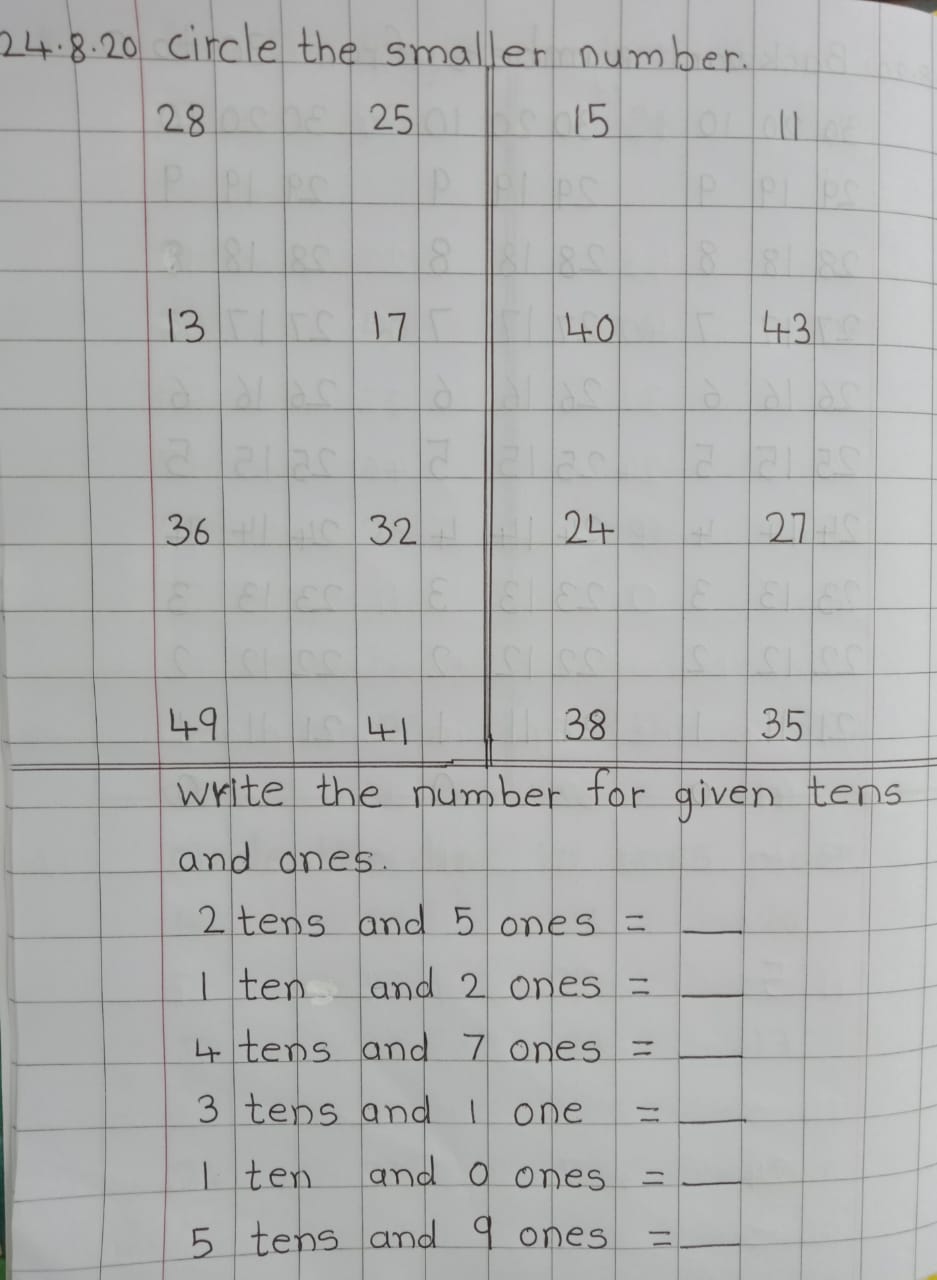 24.8.20 Circle the smaller number.
28 25 15 11
13 17 40 43
36 32 24 27
49 41 38 35
Write the number for given tens
and ones.
2 tens and 5 ones = __
1 ten and 2 ones = __
4 tens and 7 ones = __
3 tens and 1 one = __
1 ten and 0 ones = __
5 tens and 9 ones = __